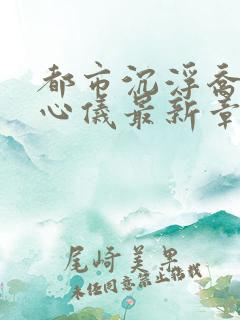 都市沉浮乔
心仪最新章
尾崎美果
未经同意禁止转载